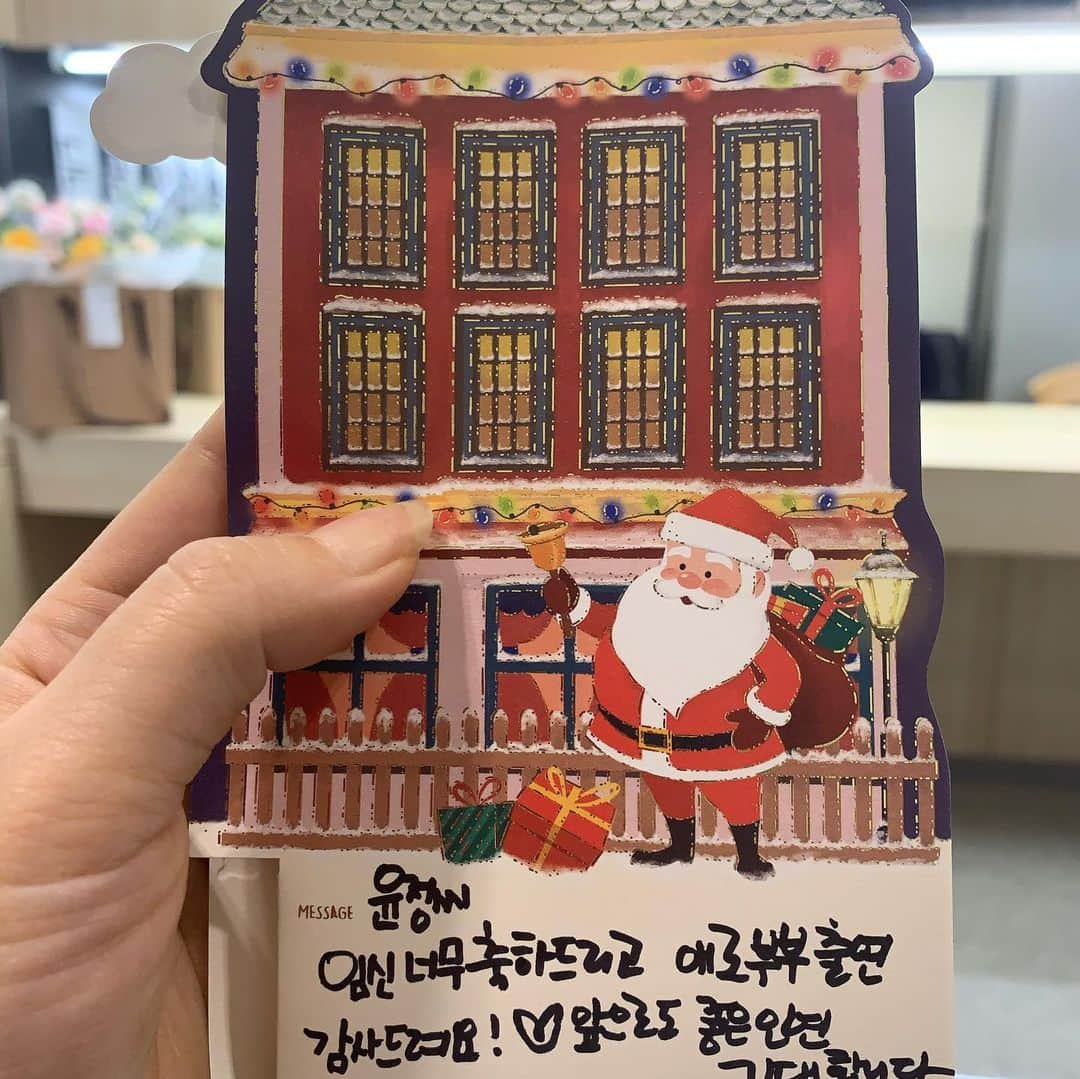 MESSAGE 윤정씨
임신 너무 축하드리고 애로부부 출연
감사드려요! ♡ 앞으로도 좋은 인연
기대합니다